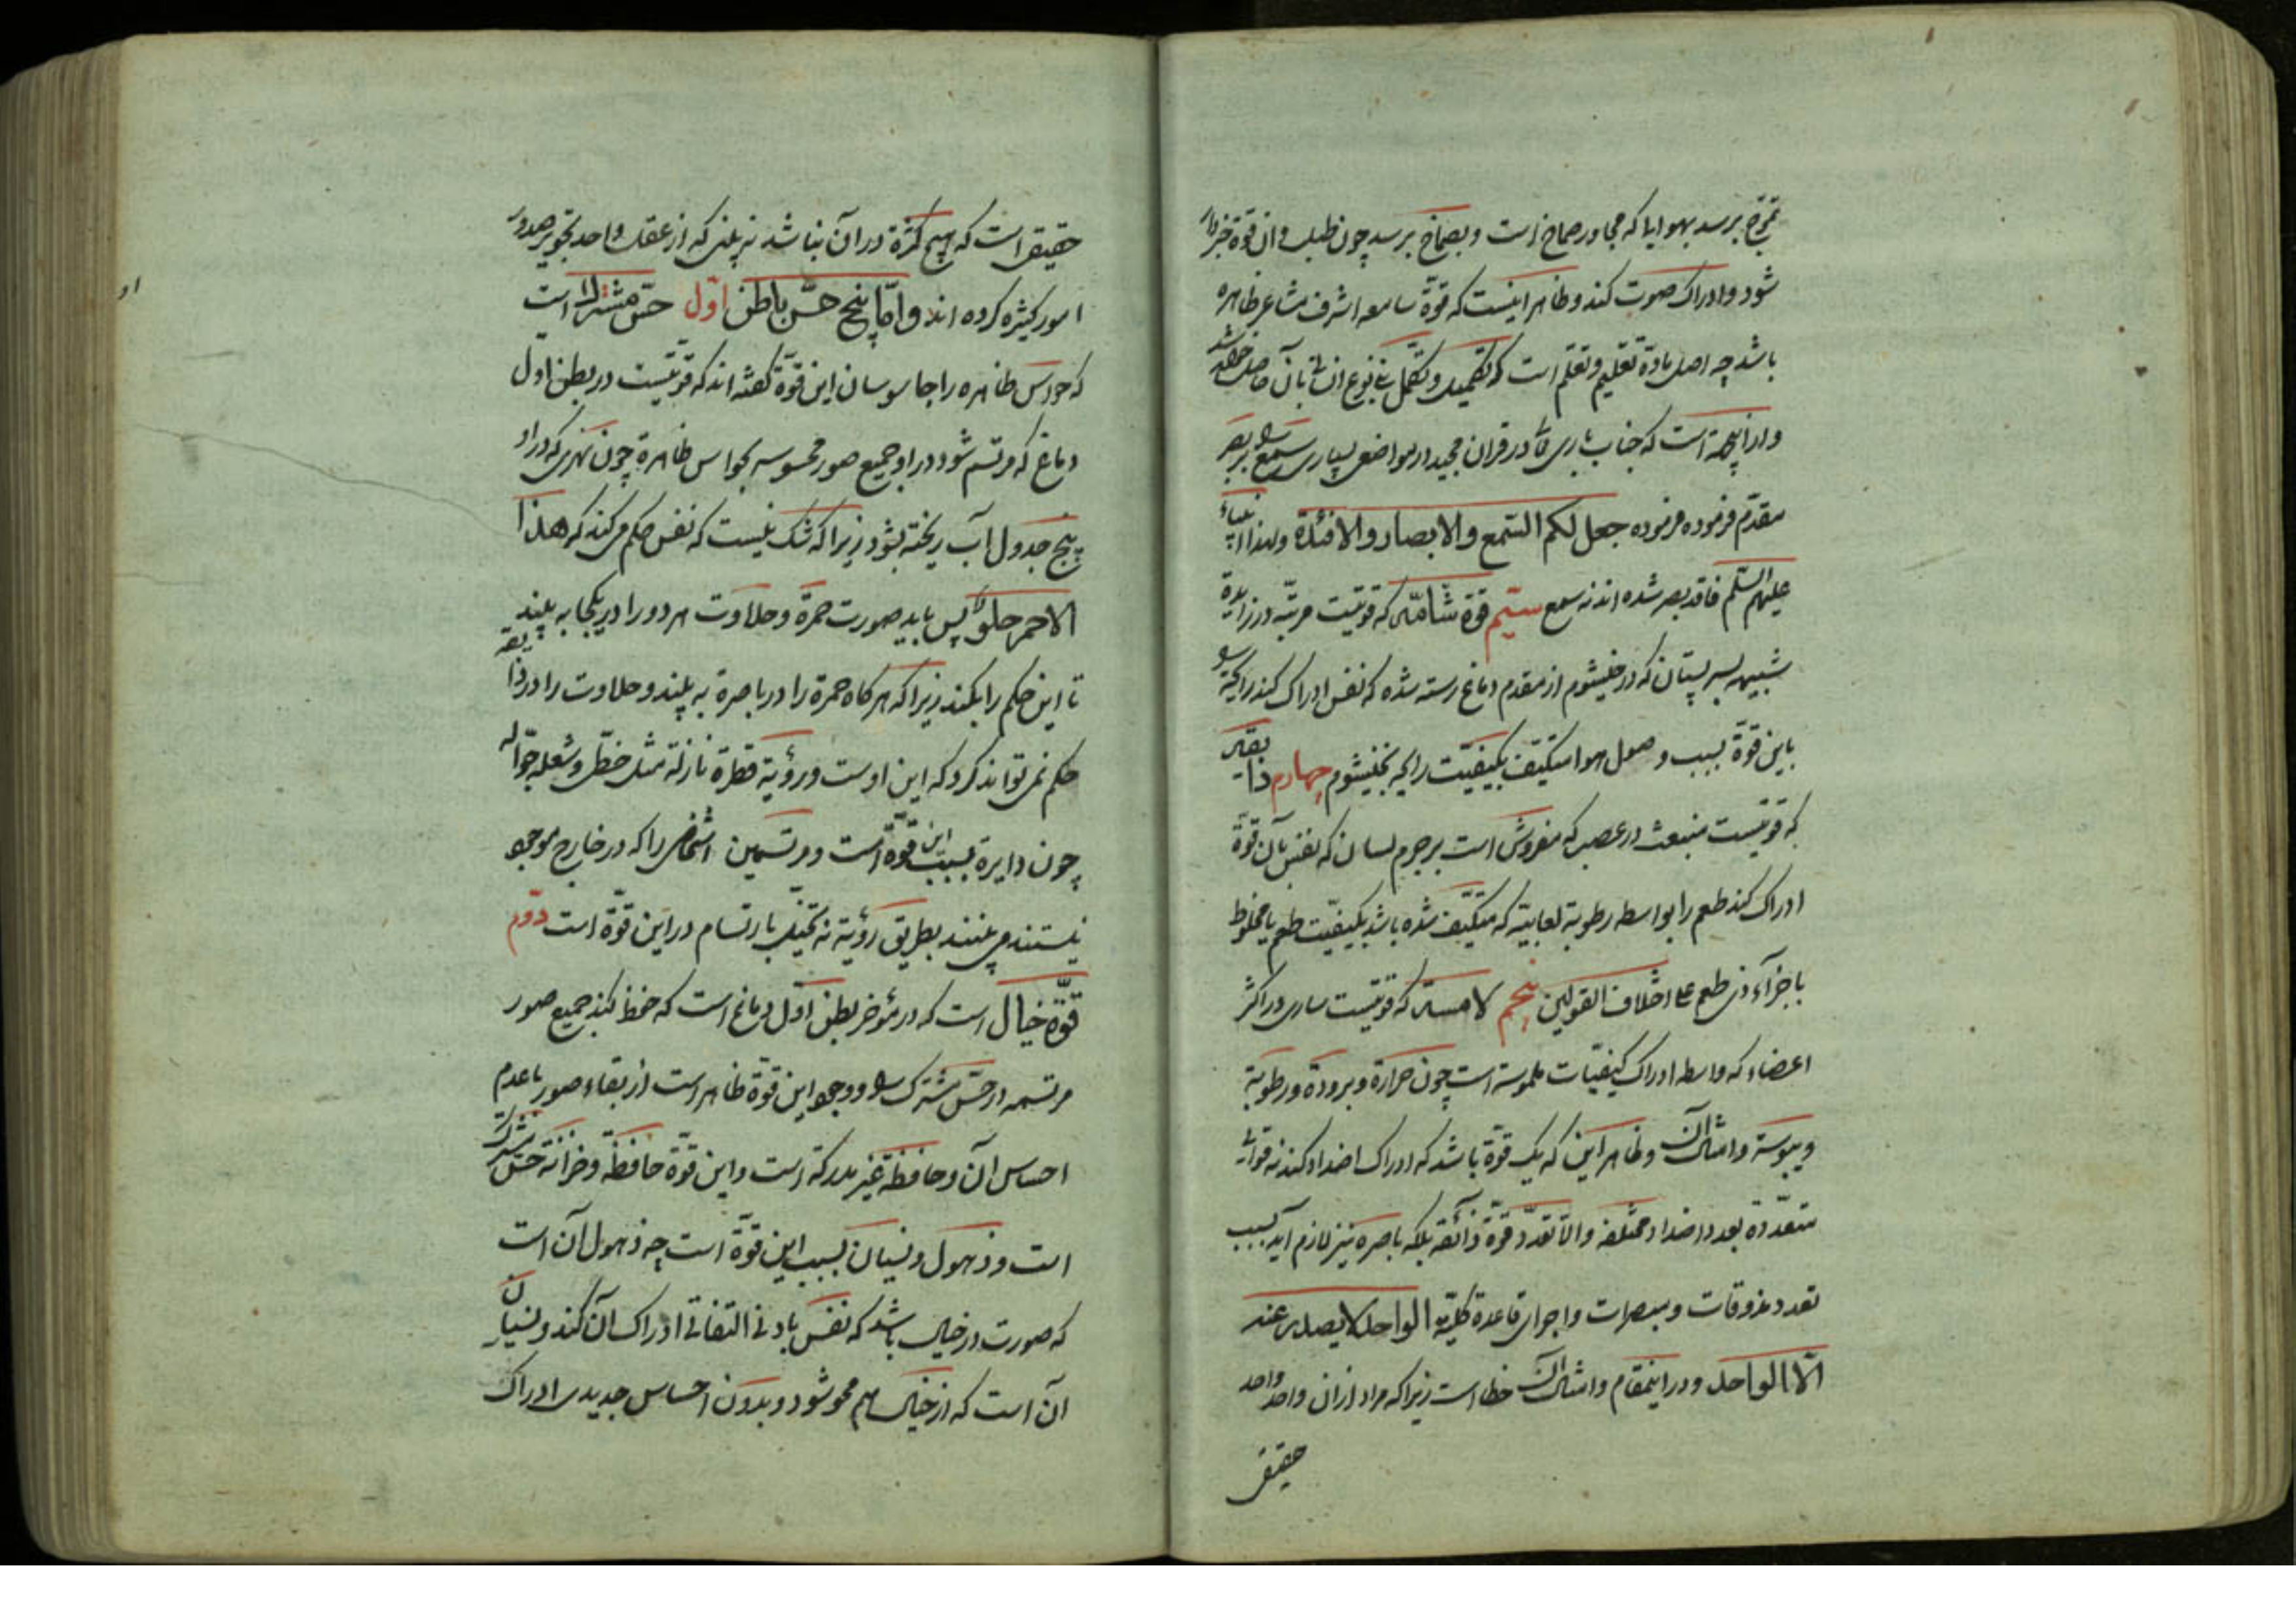 تموج برسد بهوایا که مجاور صماخ است و بصماخ برسد چون طبل و ان قوة خبردار
شود و ادراک صوت کند و ظاهر اینست که قوة سامعه اشرف مشاعر ظاهره
باشد چه اصل مادة تعلیم و تعلم است که تکمیل و تکمل بنی نوع انسانی بآن حاصل خواهد شد
و ازاینجهة است که جناب باری تعالی در قران مجید در مواضع بسیاری سمع را بر بصر
مقدم فرموده فرموده جعل لکم السمع والابصار والافئدة ولهذا انبیاء
علیهم السلم فاقد بصر شده اند نه سمع سیم قوة شامه که قوتیست مرتبه در زایدة
شبیهه بسر پستان که در خیشوم از مقدم دماغ رسته شده که نفس ادراک کند رایحة را
باین قوة بسبب وصول هوا متکیف بکیفیت رایحه بخیشوم چهارم ذایقه
که قوتیست منبعث در عصب که مفروش است بر جرم لسان که نفس بآن قوة
ادراک کند طعم را بواسطه رطوبة لعابیه که متکیف شده باشد بکیفیت طعم یا مخلوط
باجزآء ذی طعم علی اختلاف القولین پنجم لامسه که قوتیست ساری در اکثر
اعضاء که واسطه ادراک کیفیات ملموسة است چون حرارة و برودة و رطوبة
و یبوسة و امثال آن و ظاهر این که یک قوة باشد که ادراک اضداد کند نه قوای
متعددة بعدد اضداد مختلفه والا تعدد قوة ذائقه بلکه باصره نیز لازم آید بسبب
تعدد مذوقات و مبصرات و اجرای قاعدة کلیة الواحد لا یصدر عنه
الا الواحد و در اینمقام و امثال آن خطا است زیرا که مراد از ان واحد واحد
حقیقی
حقیقی است که هیچ کثرة در آن نباشد نه بینی که از عقل واحد تجویز صدور
امور کثیره کرده اند و اما پنج حس باطن اول حس مشترک است
که حواس ظاهره را جاسوسان این قوة گفته اند که قوتیست در بطن اول
دماغ که مرتسم شود در او جمیع صور محسوسه بحواس ظاهرة چون نهری که در او
پنج جدول آب ریخته بشود زیرا که شک نیست که نفس حکم می کند که هذا
الاحمر حلو پس باید صورت حمرة و حلاوت هر دو را در یکجا به بیند
تا این حکم را بکند زیرا که هر کاه حمرة را در باصرة به بیند و حلاوت را در ذایقه
حکم نمی تواند کرد که این اوست و رؤیة قطرة نازلة مثل خطی و شعله جواله
چون دایرة بسبب این قوة است و مرتسمین اشخاص را که در خارج موجود
نیستند می بینند بطریق رؤیة نه تخیل بارتسام در این قوة است دوم
قوة خیال است که در مؤخر بطن اول دماغ است که حفظ کند جمیع صور
مرتسمه در حس مشترک را و وجود این قوة ظاهر است از بقاء صور با عدم
احساس آن و حافظة غیر مدرکة است و این قوة حافظة و خزانة حس مشترک
است و ذهول و نسیان بسبب این قوة است چه ذهول آن است
که صورت در خیال باشد که نفس بادنی التفاتی ادراک آن کند و نسیان
آن است که از خیال هم محو شود و بدون احساس جدیدی ادراک